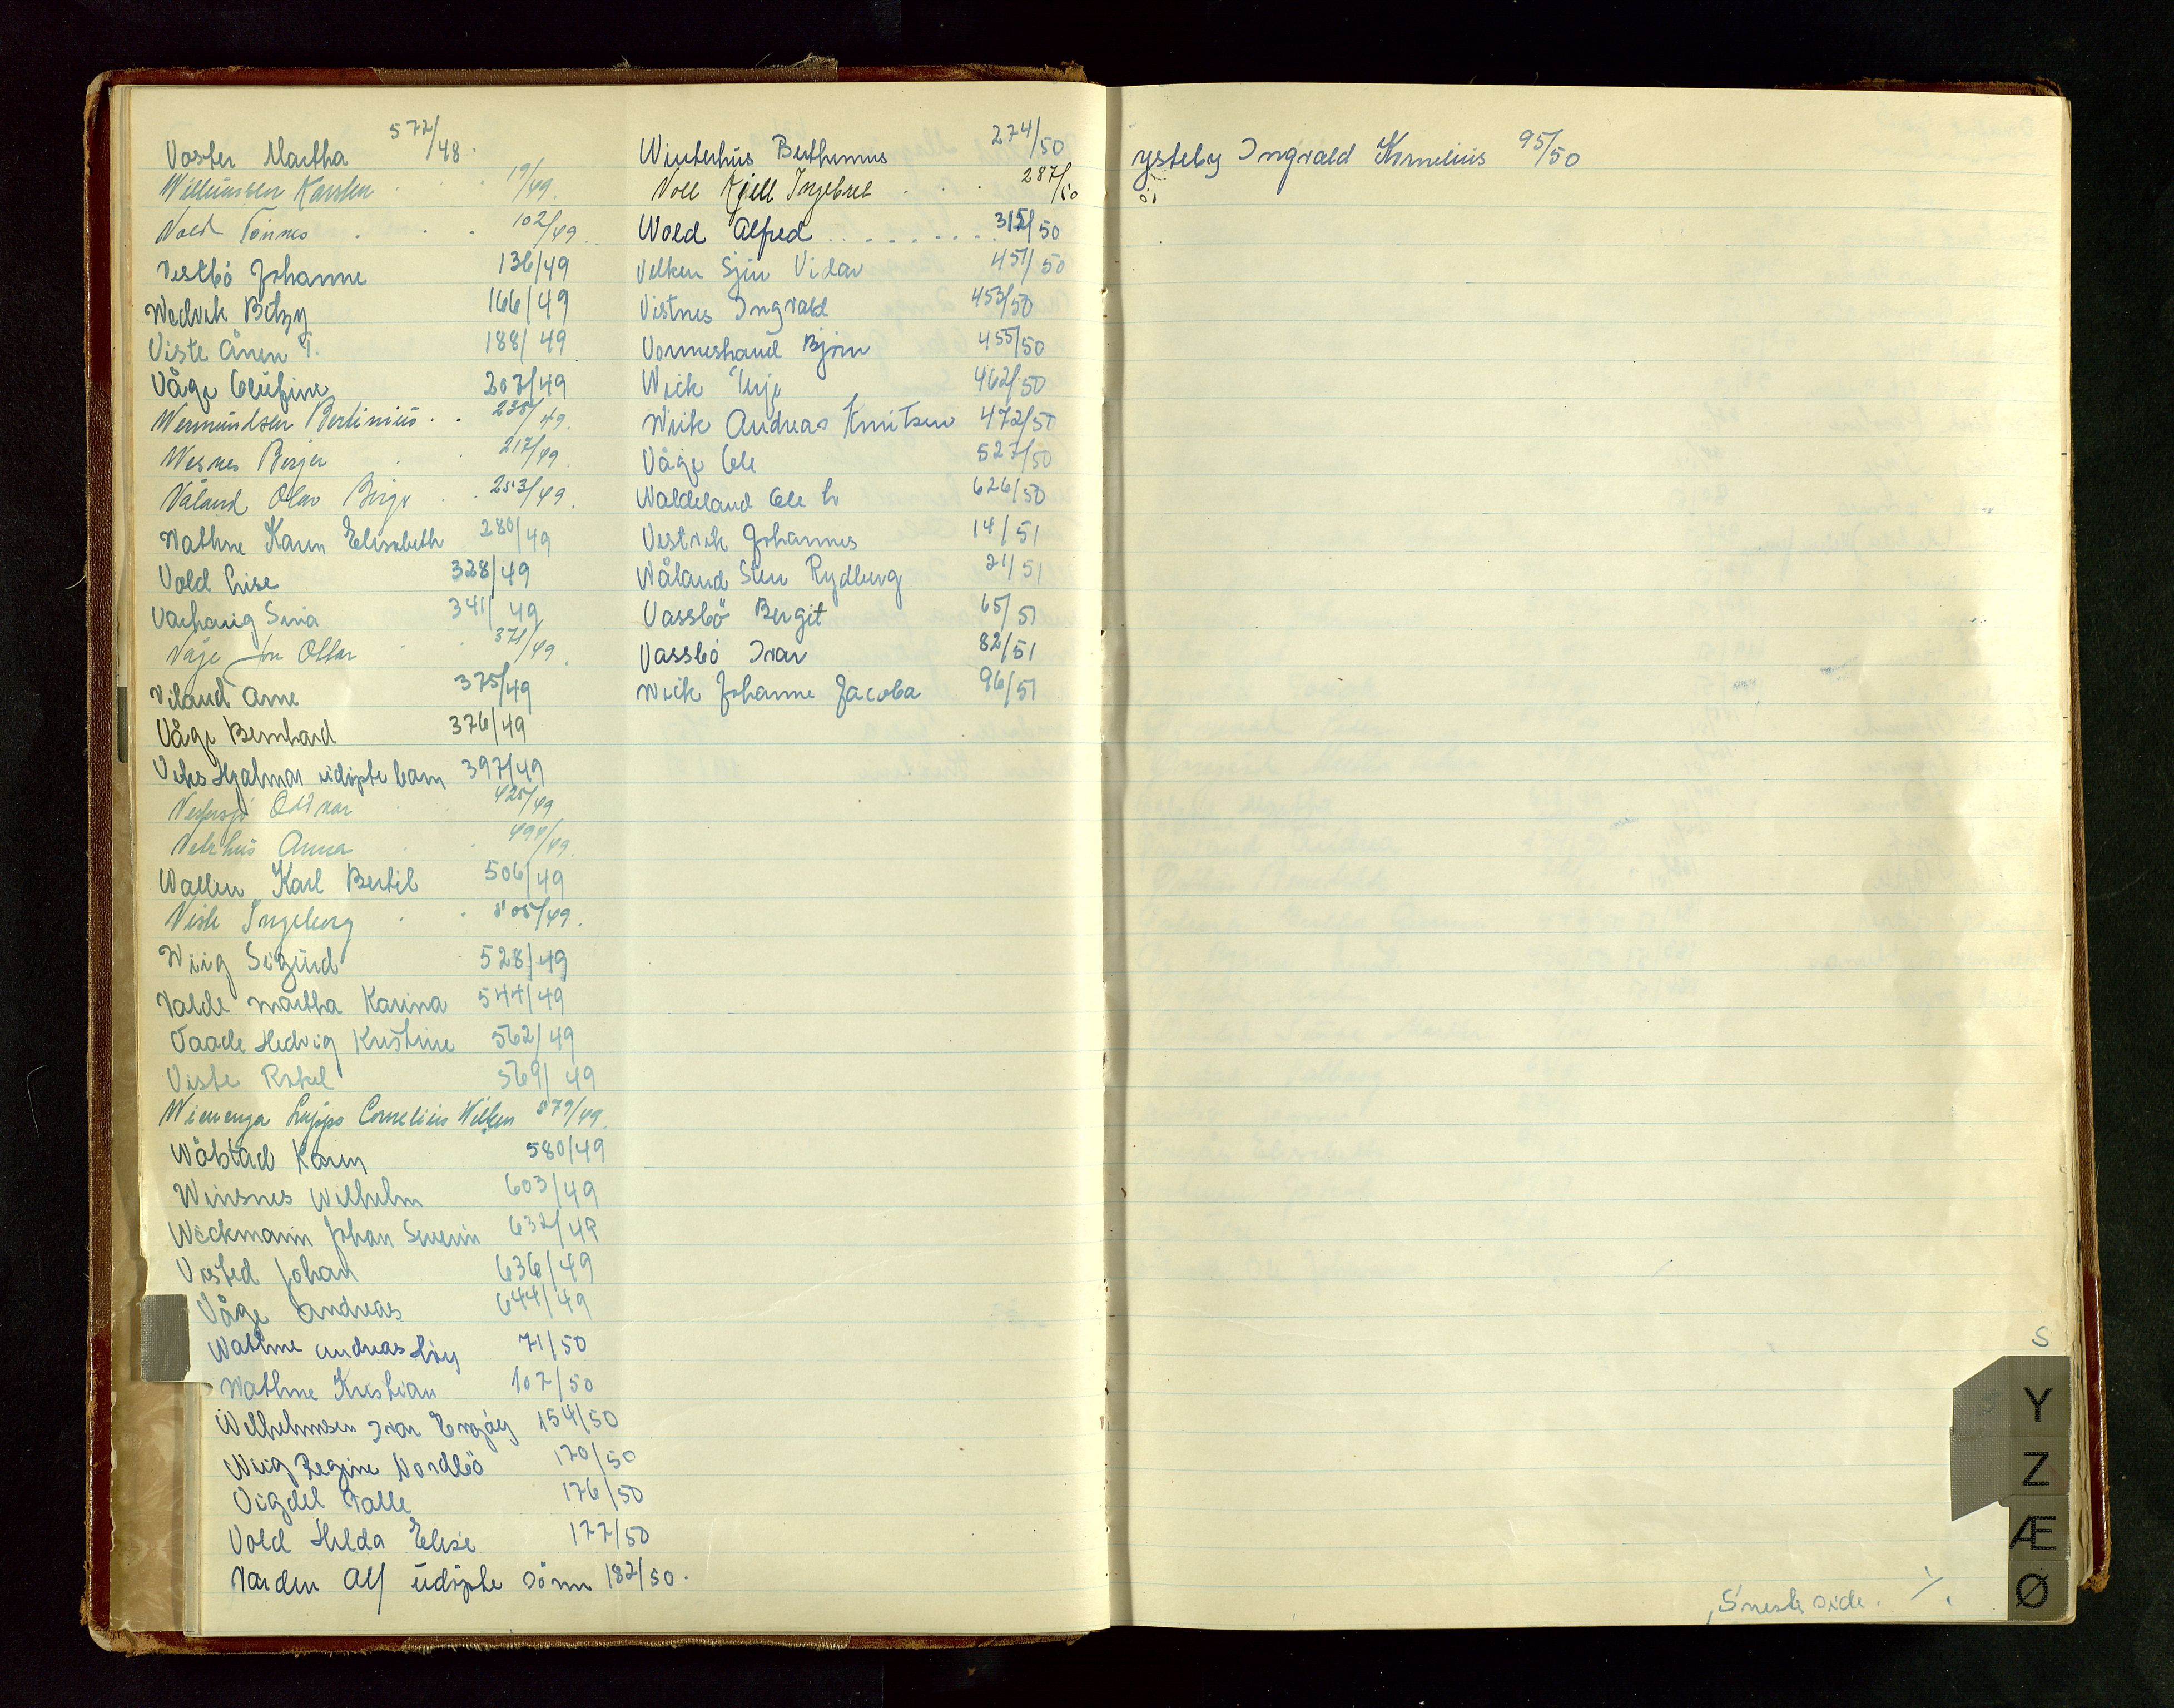 Voster Martha 572/48.
Willumsen Karsten 19/49.
Vold Tønnes 102/49.
Vestbö Johanne 136/49
Wedvik Betzy 166/49
Viste Ånen T. 188/49
Våge Olufine 207/49
Wermundsen Bertinius 235/49.
Wesnes Berger 217/49.
Våland Olav Birger 253/49.
Wathne Karen Elisabeth 280/49
Vold Lise 328/49
Varhaug Sina 341/49
Våge Jon Ottar 371/49.
Viland Arne 375/49
Våge Bernhard 376/49
Viks Hjalmar udøpte barn 397/49
Oddvar 425/49
Anna 494/49.
Wallin Karl Bertil 506/49
Ingeborg 505/49.
Wiig Sigurd 528/49
Valde Martha Karina 544/49
Vaade Hedvig Kristine 562/49
Viste Rakel 569/49
Wierenga Luppo Cornelius Wilken 579/49.
Wölstad Karen 580/49
Winsnes Wilhelm 603/49
Wickmann Johan Severin 632/49
Vested Johan 636/49
Våge Andreas 644/49
Wathne Andreas Høy 71/50
Wathne Kristian 107/50
Wilhelmsen Ivar 154/50
Wiig Regine Nordbö 170/50
Vigdel Valle 176/50
Vold Hilda Elise 177/50
Varden Alf udøpte sönn 182/50.
Winterhus Berthinius 274/50
Voll Kjell Ingebret 287/50
Wold Alfred 315/50
Velken Vidar 451/50
Vistnes Ingvald 453/50
Vormeshaud Bjørn 455/50
Wiik Terje 462/50
Wiik Andreas Knutsen 472/50
Våge Ole 527/50
Waldeland Ole L 626/50
Vestvik Johannes 14/51
Wåland Sten Rydberg 21/51
Vassbö Bergit 65/51
Vassbö Ivar 82/51
Wiik Johanne Jacoba 96/51
Ysteby Ingvald Kornelius 95/50
S
Y
Z
Æ
Ø
S neste side.